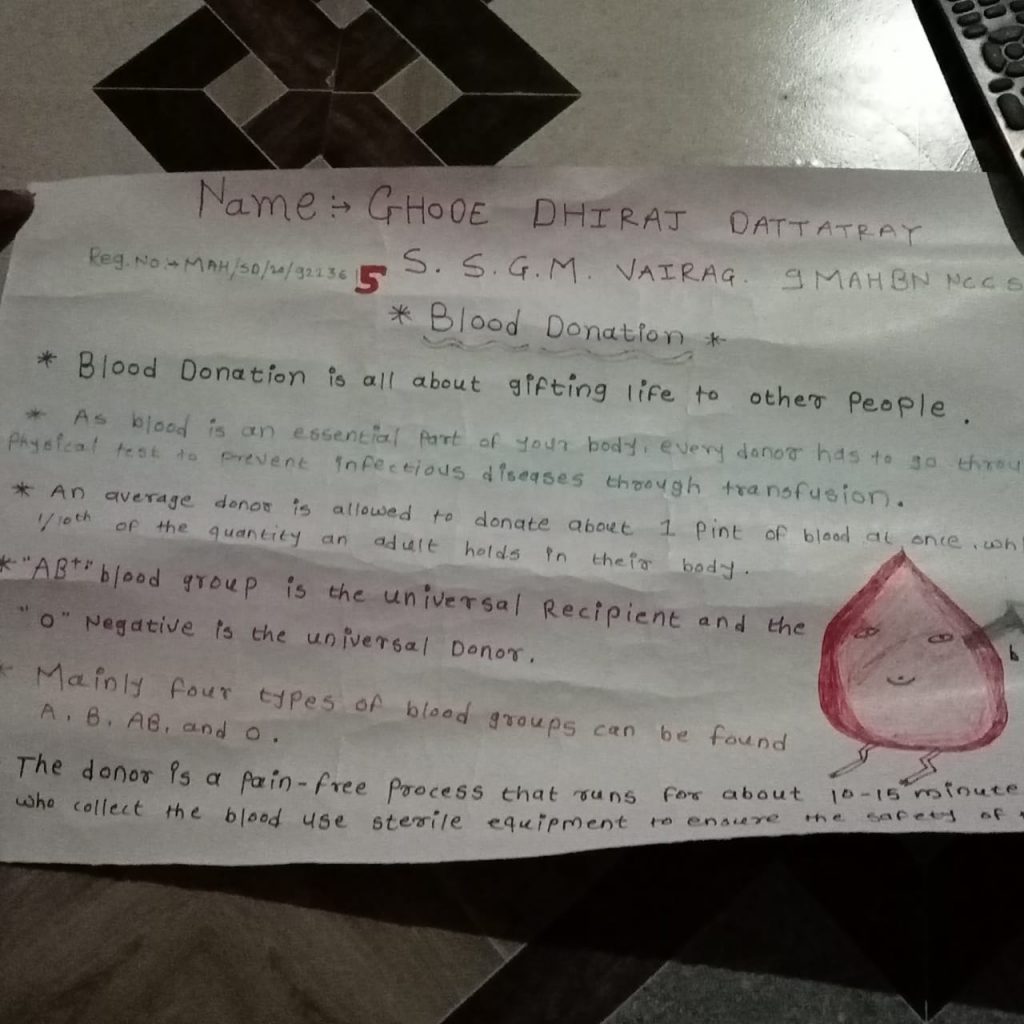 Name :→ GHODE DHIRAJ DATTATRAY
Reg. No.→ MAH/SD/20/922365 S. S. G. M. VAIRAG. 9 MAHBN NCC S
* Blood Donation *
* Blood Donation is all about gifting life to other People.
* As blood is an essential Part of your body, every donor has to go throu
Physical test to Prevent infectious diseases through transfusion.
* An average donor is allowed to donate about 1 Pint of blood at once, whi
1/10th of the quantity an adult holds in their body.
* "AB+" blood group is the universal Recipient and the
"O" Negative is the universal Donor.
* Mainly four types of blood groups can be found
A, B, AB, and O.
The donor is a Pain-free Process that runs for about 10-15 minute
who collect the blood use sterile equipment to ensure the safety of